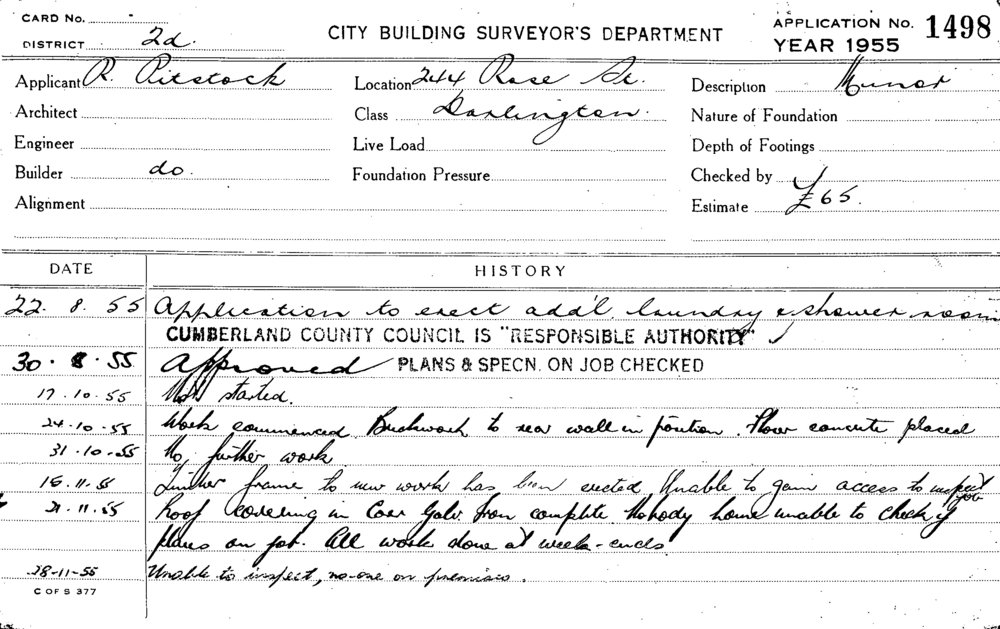 CARD No.
DISTRICT 2d.
CITY BUILDING SURVEYOR'S DEPARTMENT
APPLICATION No. 1498
YEAR 1955
Applicant R. Pitstock Location 244 Rose St. Description Minor
Architect Class Darlington. Nature of Foundation
Engineer Live Load Depth of Footings
Builder do. Foundation Pressure Checked by
Alignment Estimate £65.
DATE HISTORY
22. 8. 55 Application to erect add'l laundry & shower room
CUMBERLAND COUNTY COUNCIL IS "RESPONSIBLE AUTHORITY"
30. 8. 55 Approved PLANS & SPECN. ON JOB CHECKED
17.10.55 Not started.
24.10.55 Work commenced. Brickwork to rear wall in position. Floor concrete placed
31.10.55 No further work
15.11.55 Timber frame to new work has been erected Unable to gain access to inspect job
21.11.55 Roof covering in Corr Galv. Iron complete. Nobody home unable to check if
plans on job. All work done at week-ends.
28-11-55 Unable to inspect, no-one on premises.
C OF S 377